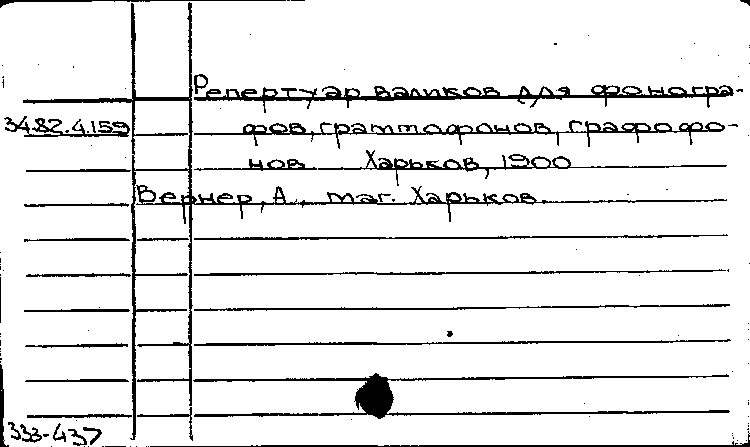 Репертуар валиков для фоногра-
34.82.4.159 фов, граммофонов, графофо-
нов Харьков, 1900
Вернер, А., маг. Харьков.
333-437